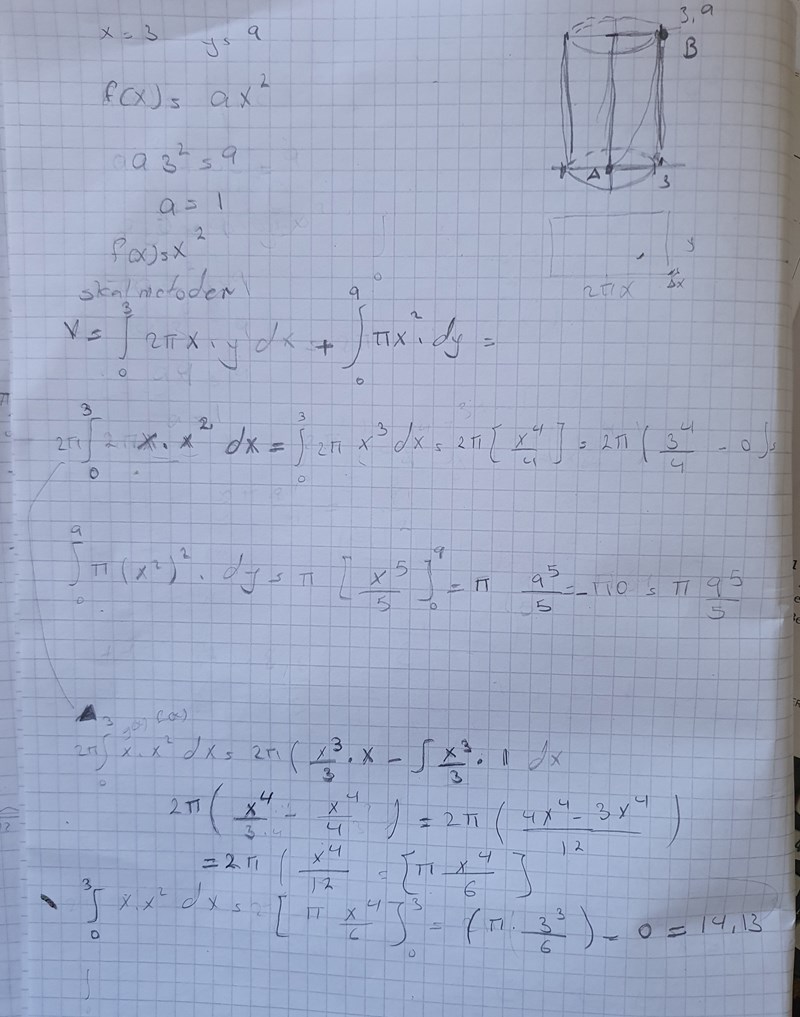 x = 3 y = 9
f(x) = ax²
a 3² = 9
a = 1
f(x) = x²
skalmetoden
3,9
B
A
3
y
2πx Δx
V = ∫₀³ 2πx · y dx + ∫₀⁹ πx² · dy =
2π ∫₀³ x · x² dx = ∫₀³ 2π x³ dx = 2π [x⁴/4] = 2π (3⁴/4 - 0) =
∫₀⁹ π (x²)² · dy = π [x⁵/5]₀⁹ = π 9⁵/5 = -π0 = π 9⁵/5
2π ∫₀³ x · x² dx = 2π (x³/3 · x - ∫ x³/3 · 1 dx
2π (x⁴/3 - x⁴/4) = 2π (4x⁴ - 3x⁴/12)
= 2π (x⁴/12 = [π x⁴/6]
∫₀³ x · x² dx = [π x⁴/6]₀³ = (π · 3³/6) - 0 = 14,13
∫